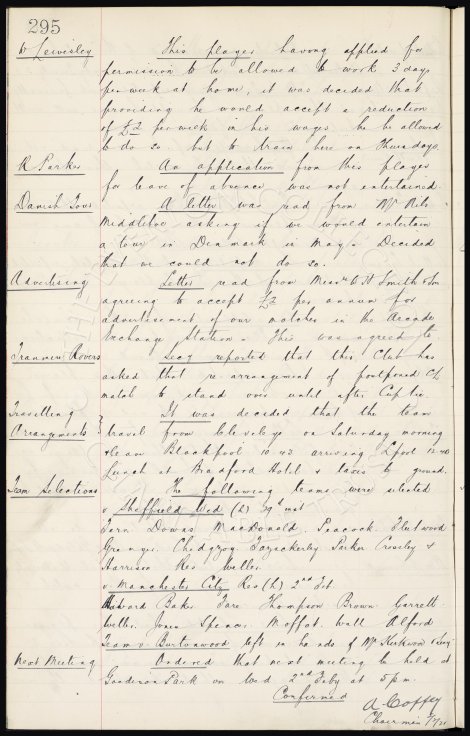 295
W Lewisley This player having applied for
permission to be allowed to work 3 days
per week at home, it was decided that
providing he would accept a reduction
of £2 per week in his wages he be allowed
to do so. but to train here on Thursdays.
R Parker An application from this player
for leave of absence was not entertained.
Danish Tour A letter was read from Mr
Middleboe asking if we would entertain
a tour in Denmark in May. Decided
that we could not do so.
Advertising Letter read from Messrs W H Smith & Son
agreeing to accept £2 per annum for
advertisement of our matches in the Arcade
Exchange Station. This was agreed to.
Tranmere Rovers Secy reported that this Club has
asked that re-arrangement of postponed
match to stand over until after Cup tie.
Travelling It was decided that the team
Arrangements travel from Cleveleys on Saturday morning
leave Blackpool 10-43 arriving L'pool 12-40
Lunch at Bradford Hotel & taxis to ground.
Team Selections The following teams were selected
v Sheffield Wed (h) 29th inst
Fern Downs MacDonald Peacock Fleetwood
Grenyer Chedgzoy Fazackerley Parker Crossley &
Harrison Res Weller
v Manchester City Res (h) 2nd Feb
Howard Baker Tare Thompson Brown Garrett
Weller Jones Spencer Moffat Wall Alford
Team v Burtonwood left in hands of Mr Kirkwood & Secy
Next Meeting Ordered that next meeting be held at
Goodison Park on Wed 2nd Feby at 5pm.
Confirmed
A Coffey
Chairman